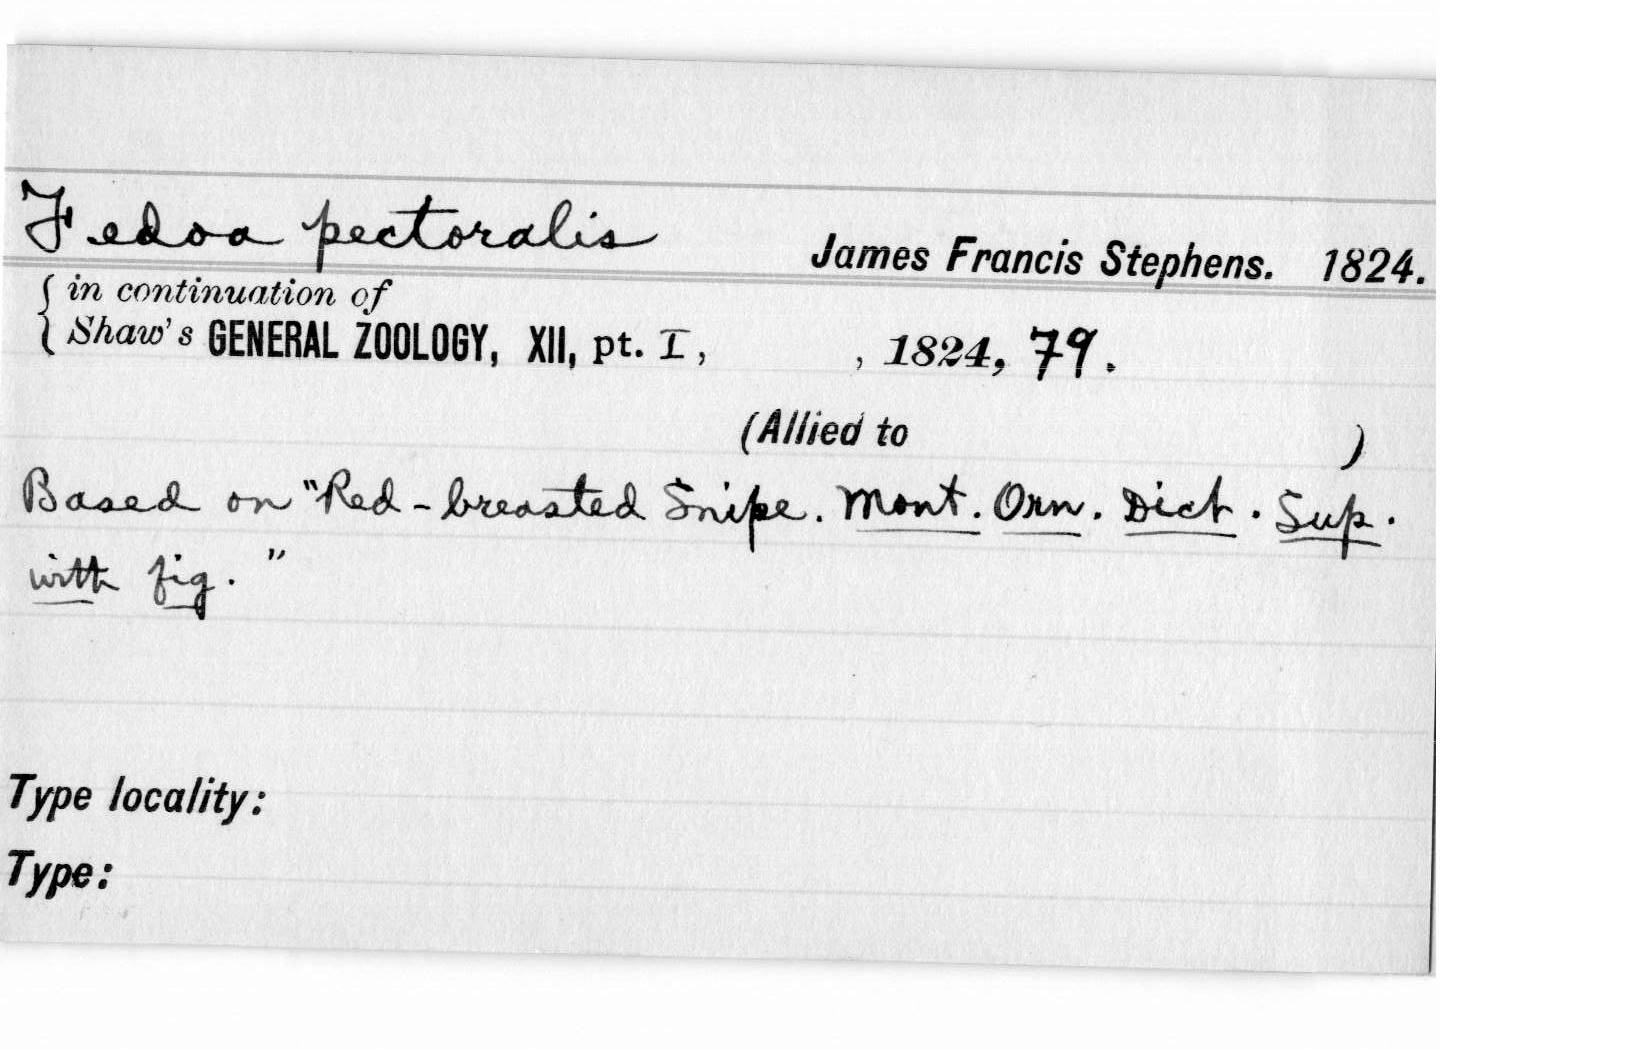 Fedoa pectoralis James Francis Stephens. 1824.
in continuation of
Shaw's GENERAL ZOOLOGY, XII, pt. I, , 1824, 79.
(Allied to )
Based on "Red-breasted Snipe. Mont. Orn. Dict. Sup.
with fig."
Type locality:
Type: